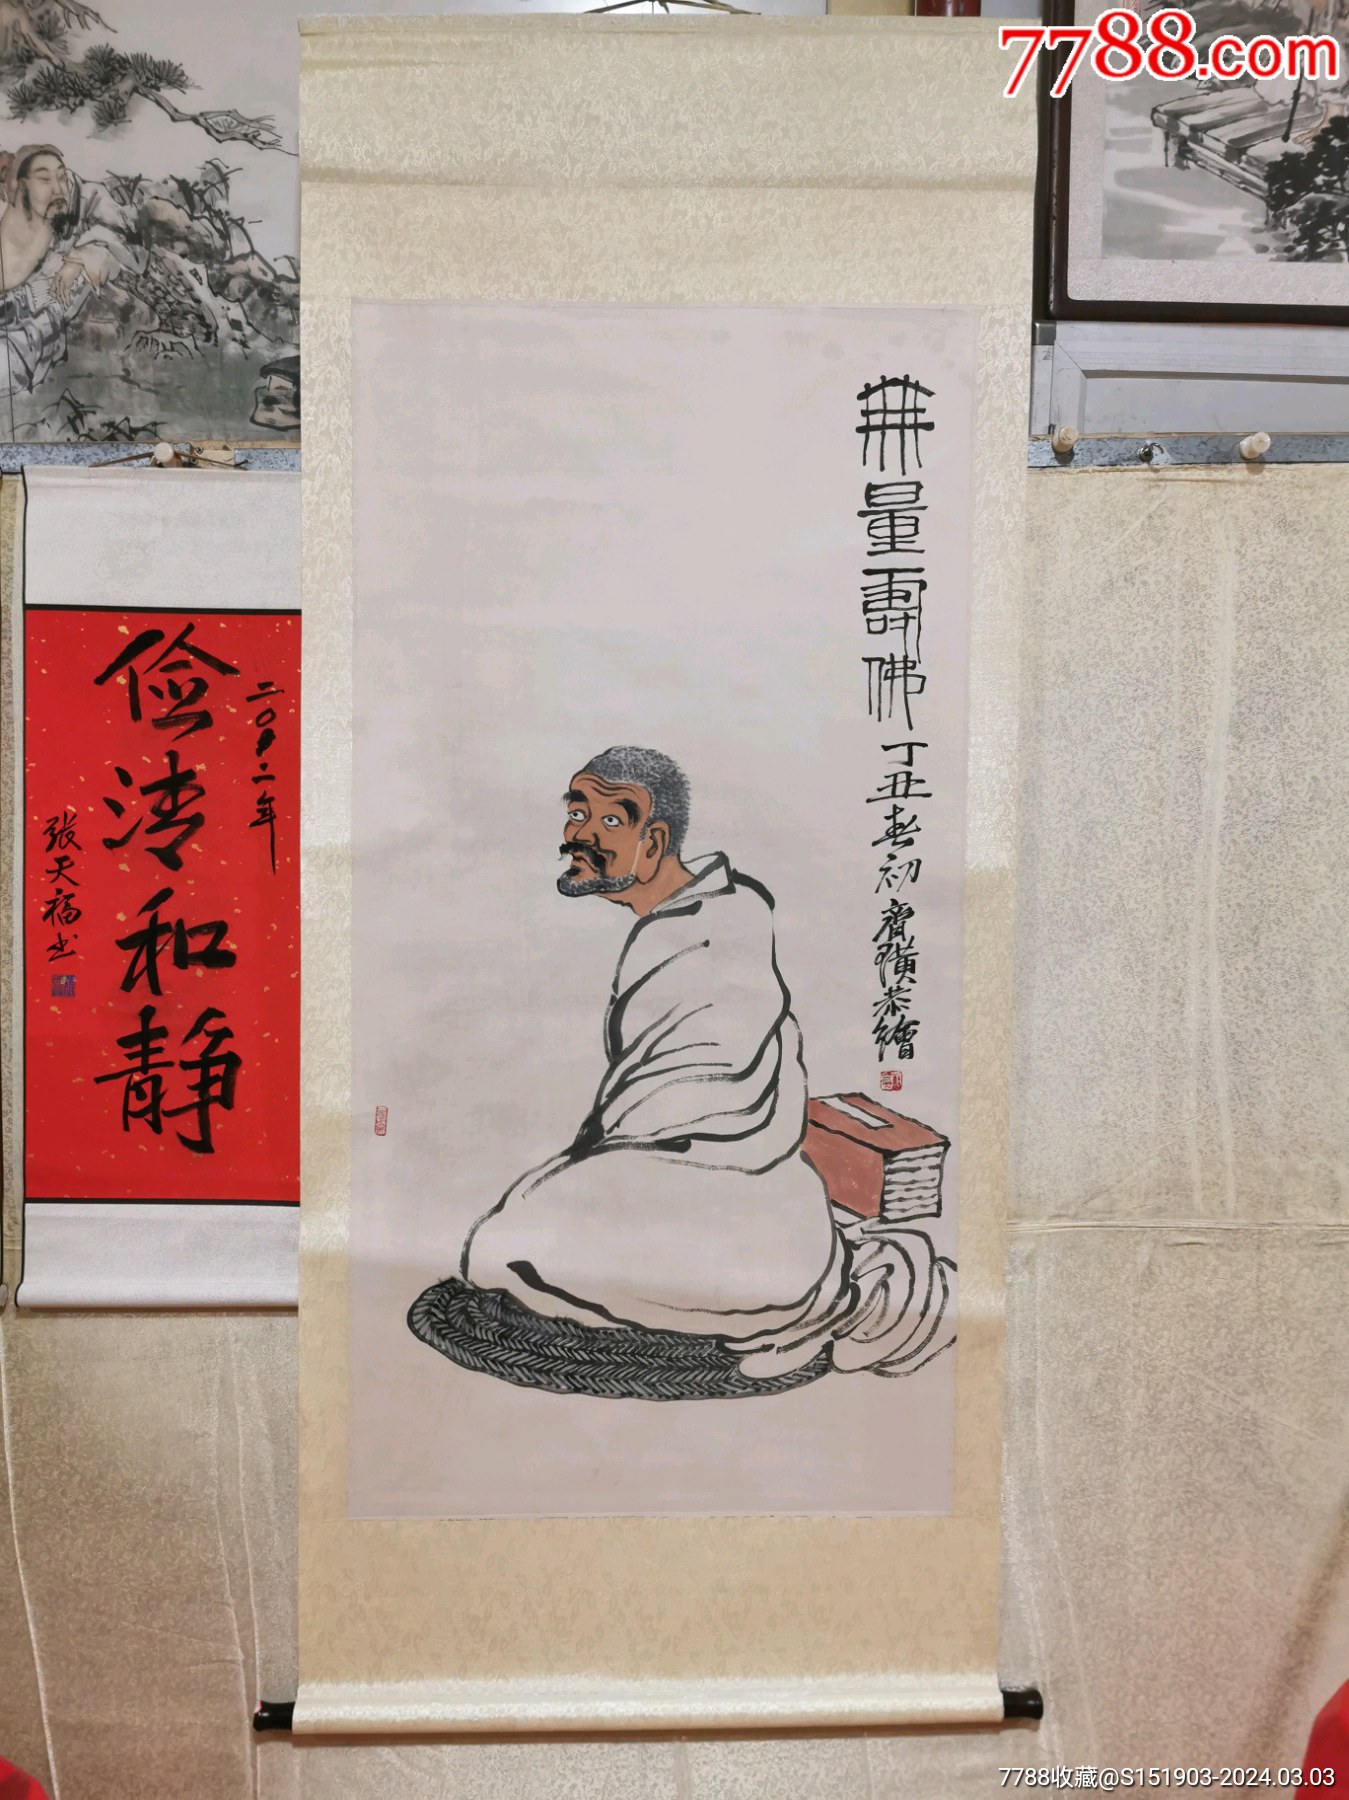 7788.com
無量壽佛
丁丑春初齊璜恭繪
二〇〇二年
儉清和静
張天福书
7788收藏@S151903-2024.03.03